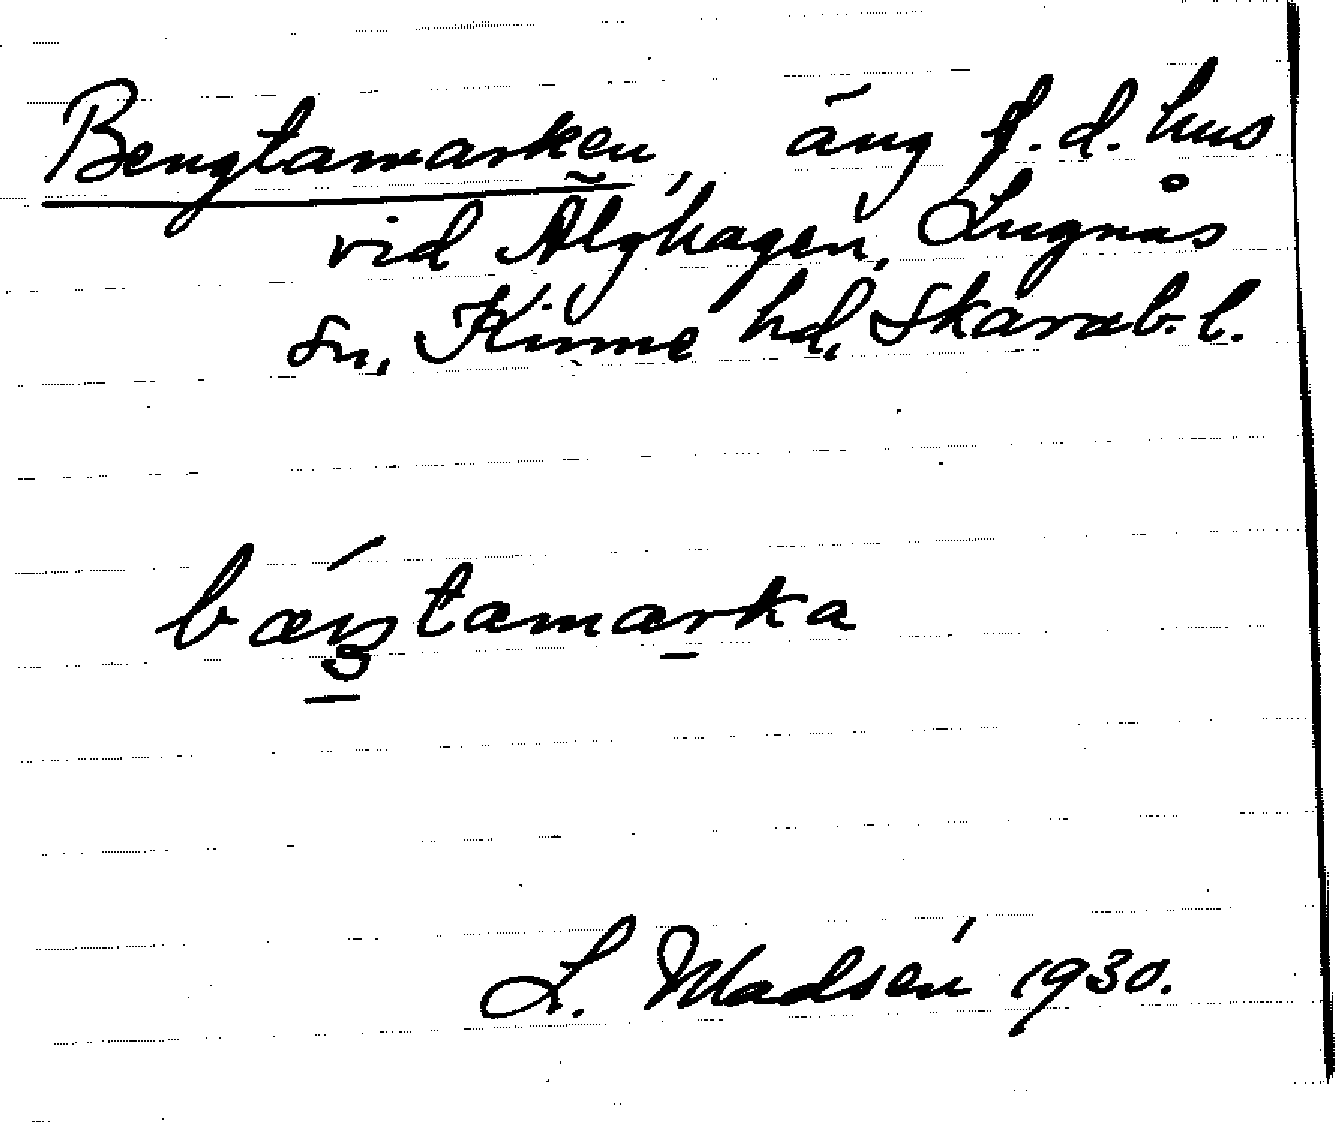 Bengtamarken, äng f.d. hus
vid Älghagen, Lugnås
sn, Kinne hd, Skarab. l.
bæŋ́tamarka
L. Madsén 1930.